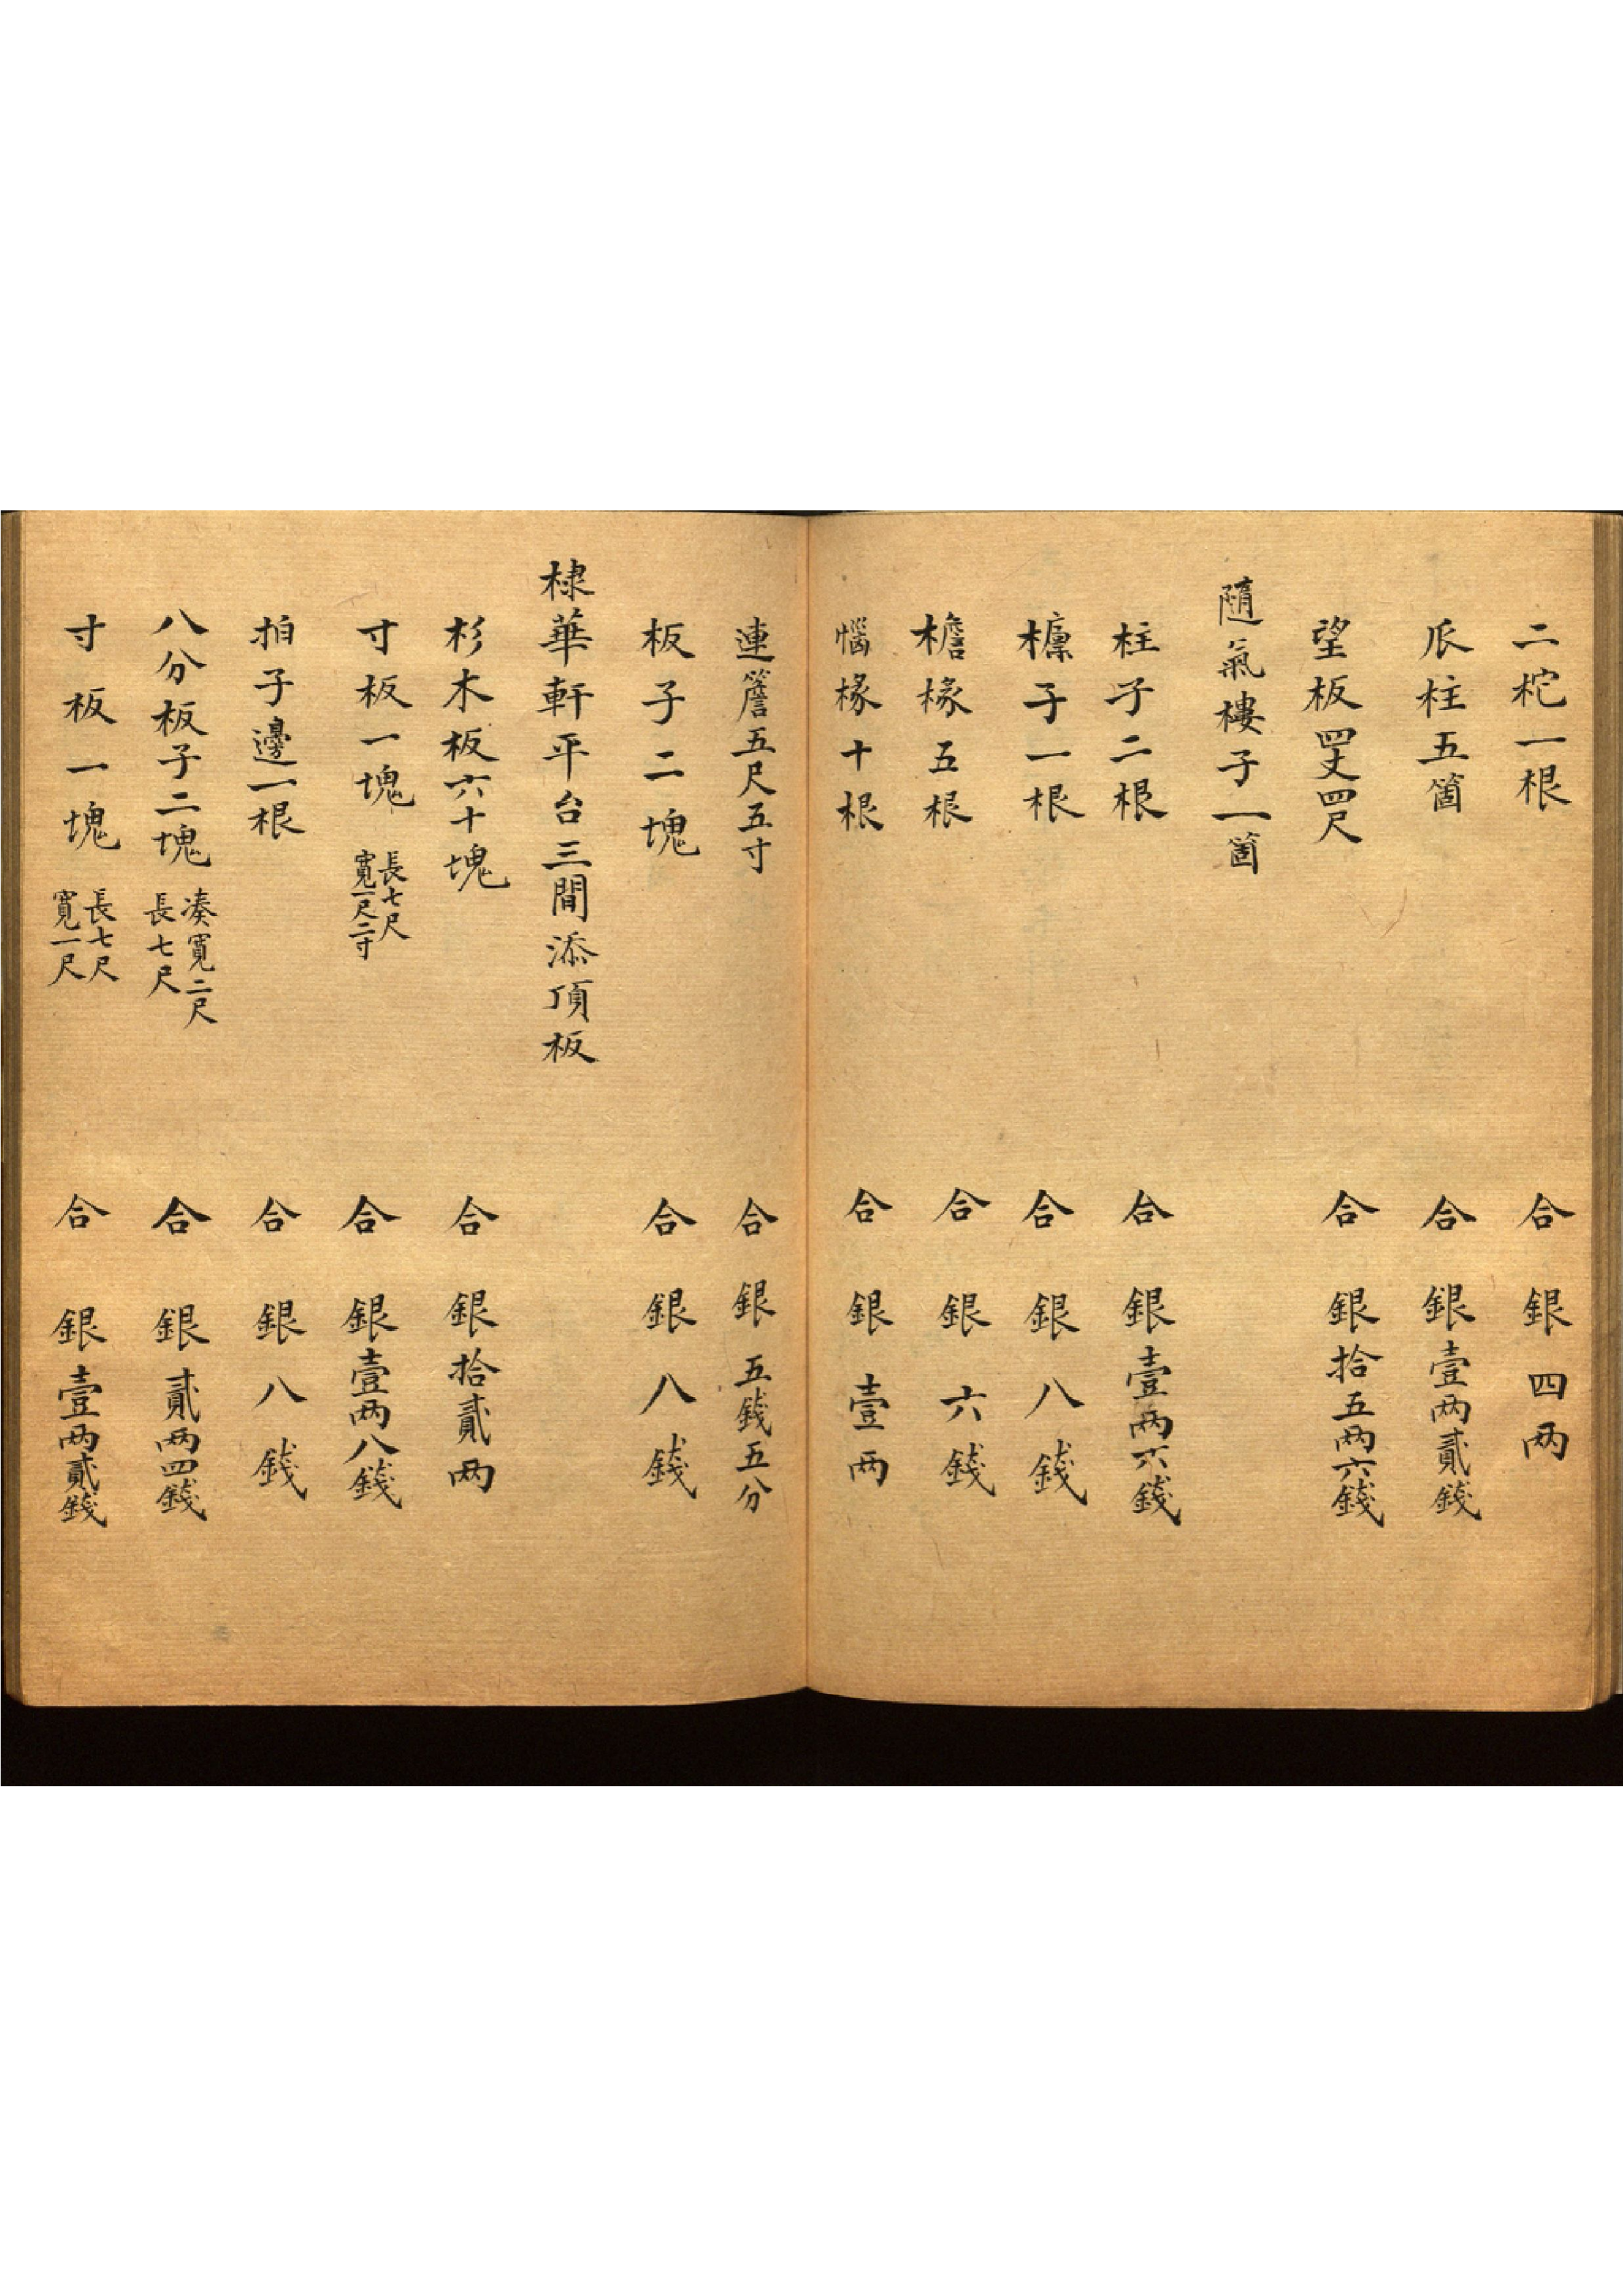 二柁一根 合銀四两
爪柱五箇 合銀壹两貳錢
望板四丈四尺 合銀拾五两六錢
隨氣樓子一箇
柱子二根 合銀壹两六錢
檩子一根 合銀八錢
檐椽五根 合銀六錢
惱椽十根 合銀壹两
連簷五尺五寸 合銀五錢五分
板子二塊 合銀八錢
棣華軒平台三間添頂板
杉木板六十塊 合銀拾貳两
寸板一塊 長七尺 寬一尺二寸 合銀壹两八錢
拍子邊一根 合銀八錢
八分板子二塊 凑寬二尺 長七尺 合銀貳两四錢
寸板一塊 長七尺 寬一尺 合銀壹两貳錢